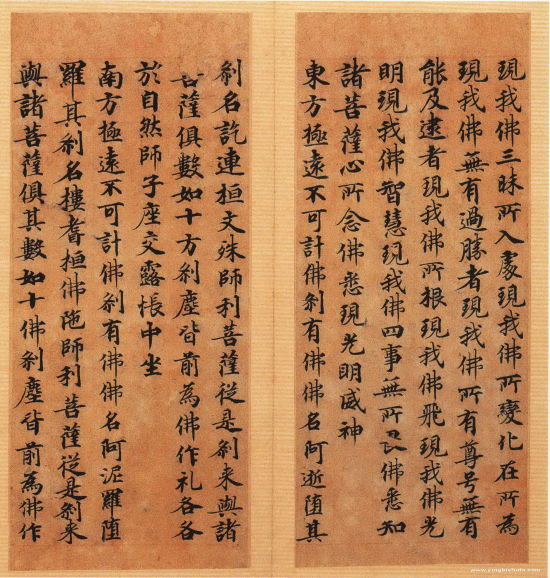 現我佛三昧所入處現我佛所變化在所為
現我佛無有過勝者現我佛所有尊号無有
能及逮者現我佛所根現我佛飛現我佛光
明現我佛智慧現我佛四事無所畏佛悉知
諸菩薩心所念佛悉現光明威神
東方極遠不可計佛剎有佛佛名阿逝墮其
剎名訖連桓文殊師利菩薩從是剎来與諸
菩薩俱數如十方剎塵皆前為佛作礼各各
於自然師子座交露帳中坐
南方極遠不可計佛剎有佛佛名阿泥羅墮
羅其剎名樓耆桓佛陁師利菩薩從是剎来
與諸菩薩俱其數如十佛剎塵皆前為佛作
www.yingbishufa.com